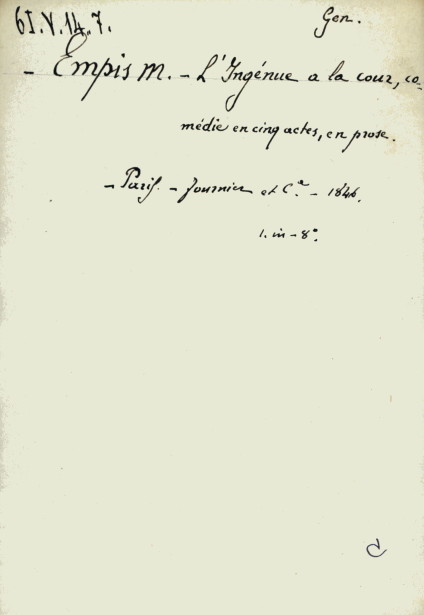 6I.V.14.7.
Gen.
- Empis M. - L'Ingénue a la cour, co-
médie en cinq actes, en prose.
- Paris. - Fournier et C.e - 1846.
1. in - 8°.